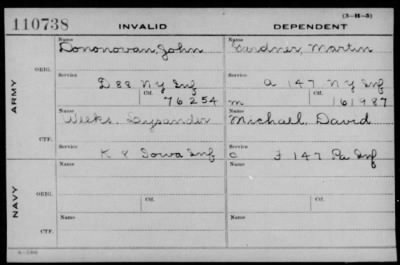 110738 INVALID DEPENDENT (3-H-5)
Name Name
Dononovan, John Gardner, Martin
ORIG. Service Service
D 88 NY Inf A 147 NY Inf
Ctf. Ctf.
76254 m 161987
ARMY
Name Name
Weeks, Lysander Michael, David
CTF. Service Service
K 8 Iowa Inf C F 147 Pa Inf
Name Ctf. Name Ctf.
ORIG.
Service Service
NAVY
Name Name
CTF.
Service Service